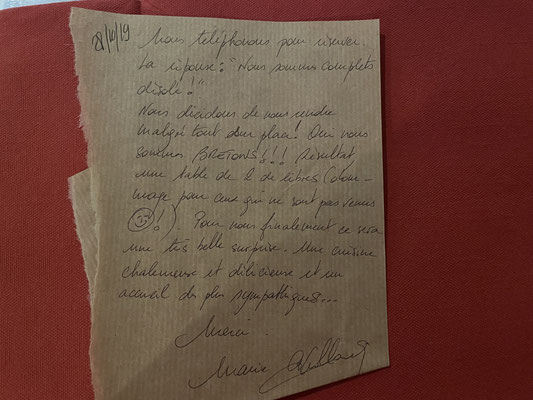 28/10/19
Nous téléphonons pour réserver
La réponse : "Nous sommes complets
désolé !"
Nous décidons de nous rendre
malgré tout sur place ! Oui nous
sommes BRETONS !!! Résultat
une table de 2 de libres (Dom-
mage pour ceux qui ne sont pas venus
!). Pour nous finalement ce sera
une très belle surprise. Une cuisine
chaleureuse et délicieuse et un
accueil des plus sympathiques...
Merci.
Marie